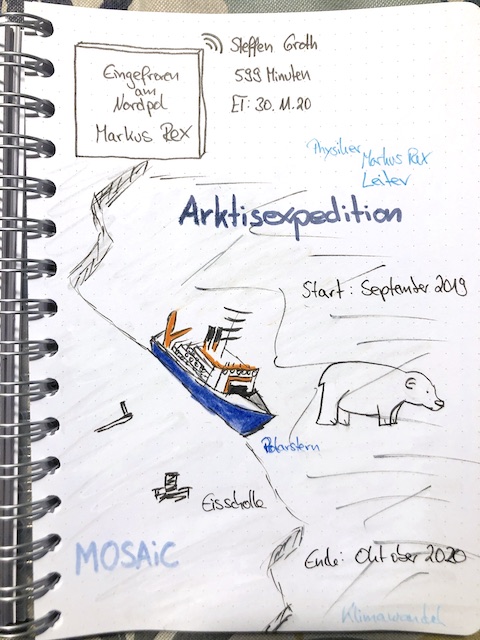 Eingefroren
am
Nordpol
Markus Rex
Steffen Groth
599 Minuten
ET: 30.11.20
Physiker Markus Rex
Leiter
Arktisexpedition
Start: September 2019
Polarstern
Eisscholle
MOSAiC
Ende: Oktober 2020
Klimawandel